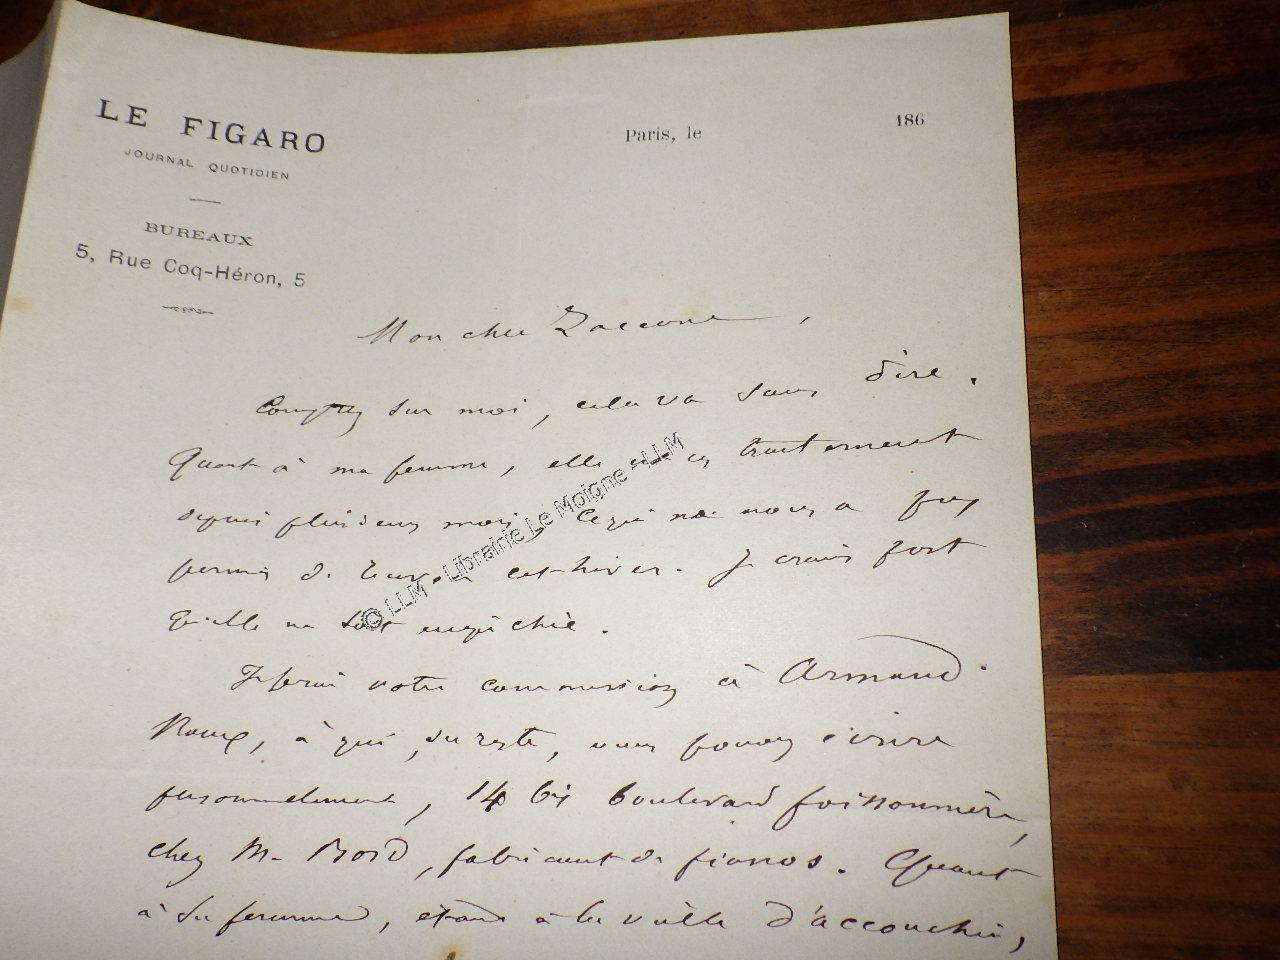 LE FIGARO
JOURNAL QUOTIDIEN
BUREAUX
5, Rue Coq-Héron, 5
Paris, le 186
Mon cher Zaccone,
Comptez sur moi, cela va sans dire.
Quant à ma femme, elle est en traitement
depuis plusieurs mois, ce qui ne nous a pas
permis de recevoir cet hiver. Je crains fort
qu'elle ne soit empêchée.
Je ferai votre commission à Armand
Roux, à qui, du reste, vous pouvez écrire
personnellement, 14 bis boulevard poissonnière,
chez M. Bord, fabricant de pianos. Quant
à sa femme, étant à la veille d'accoucher,
© LLM - Librairie Le Moigne - LLM